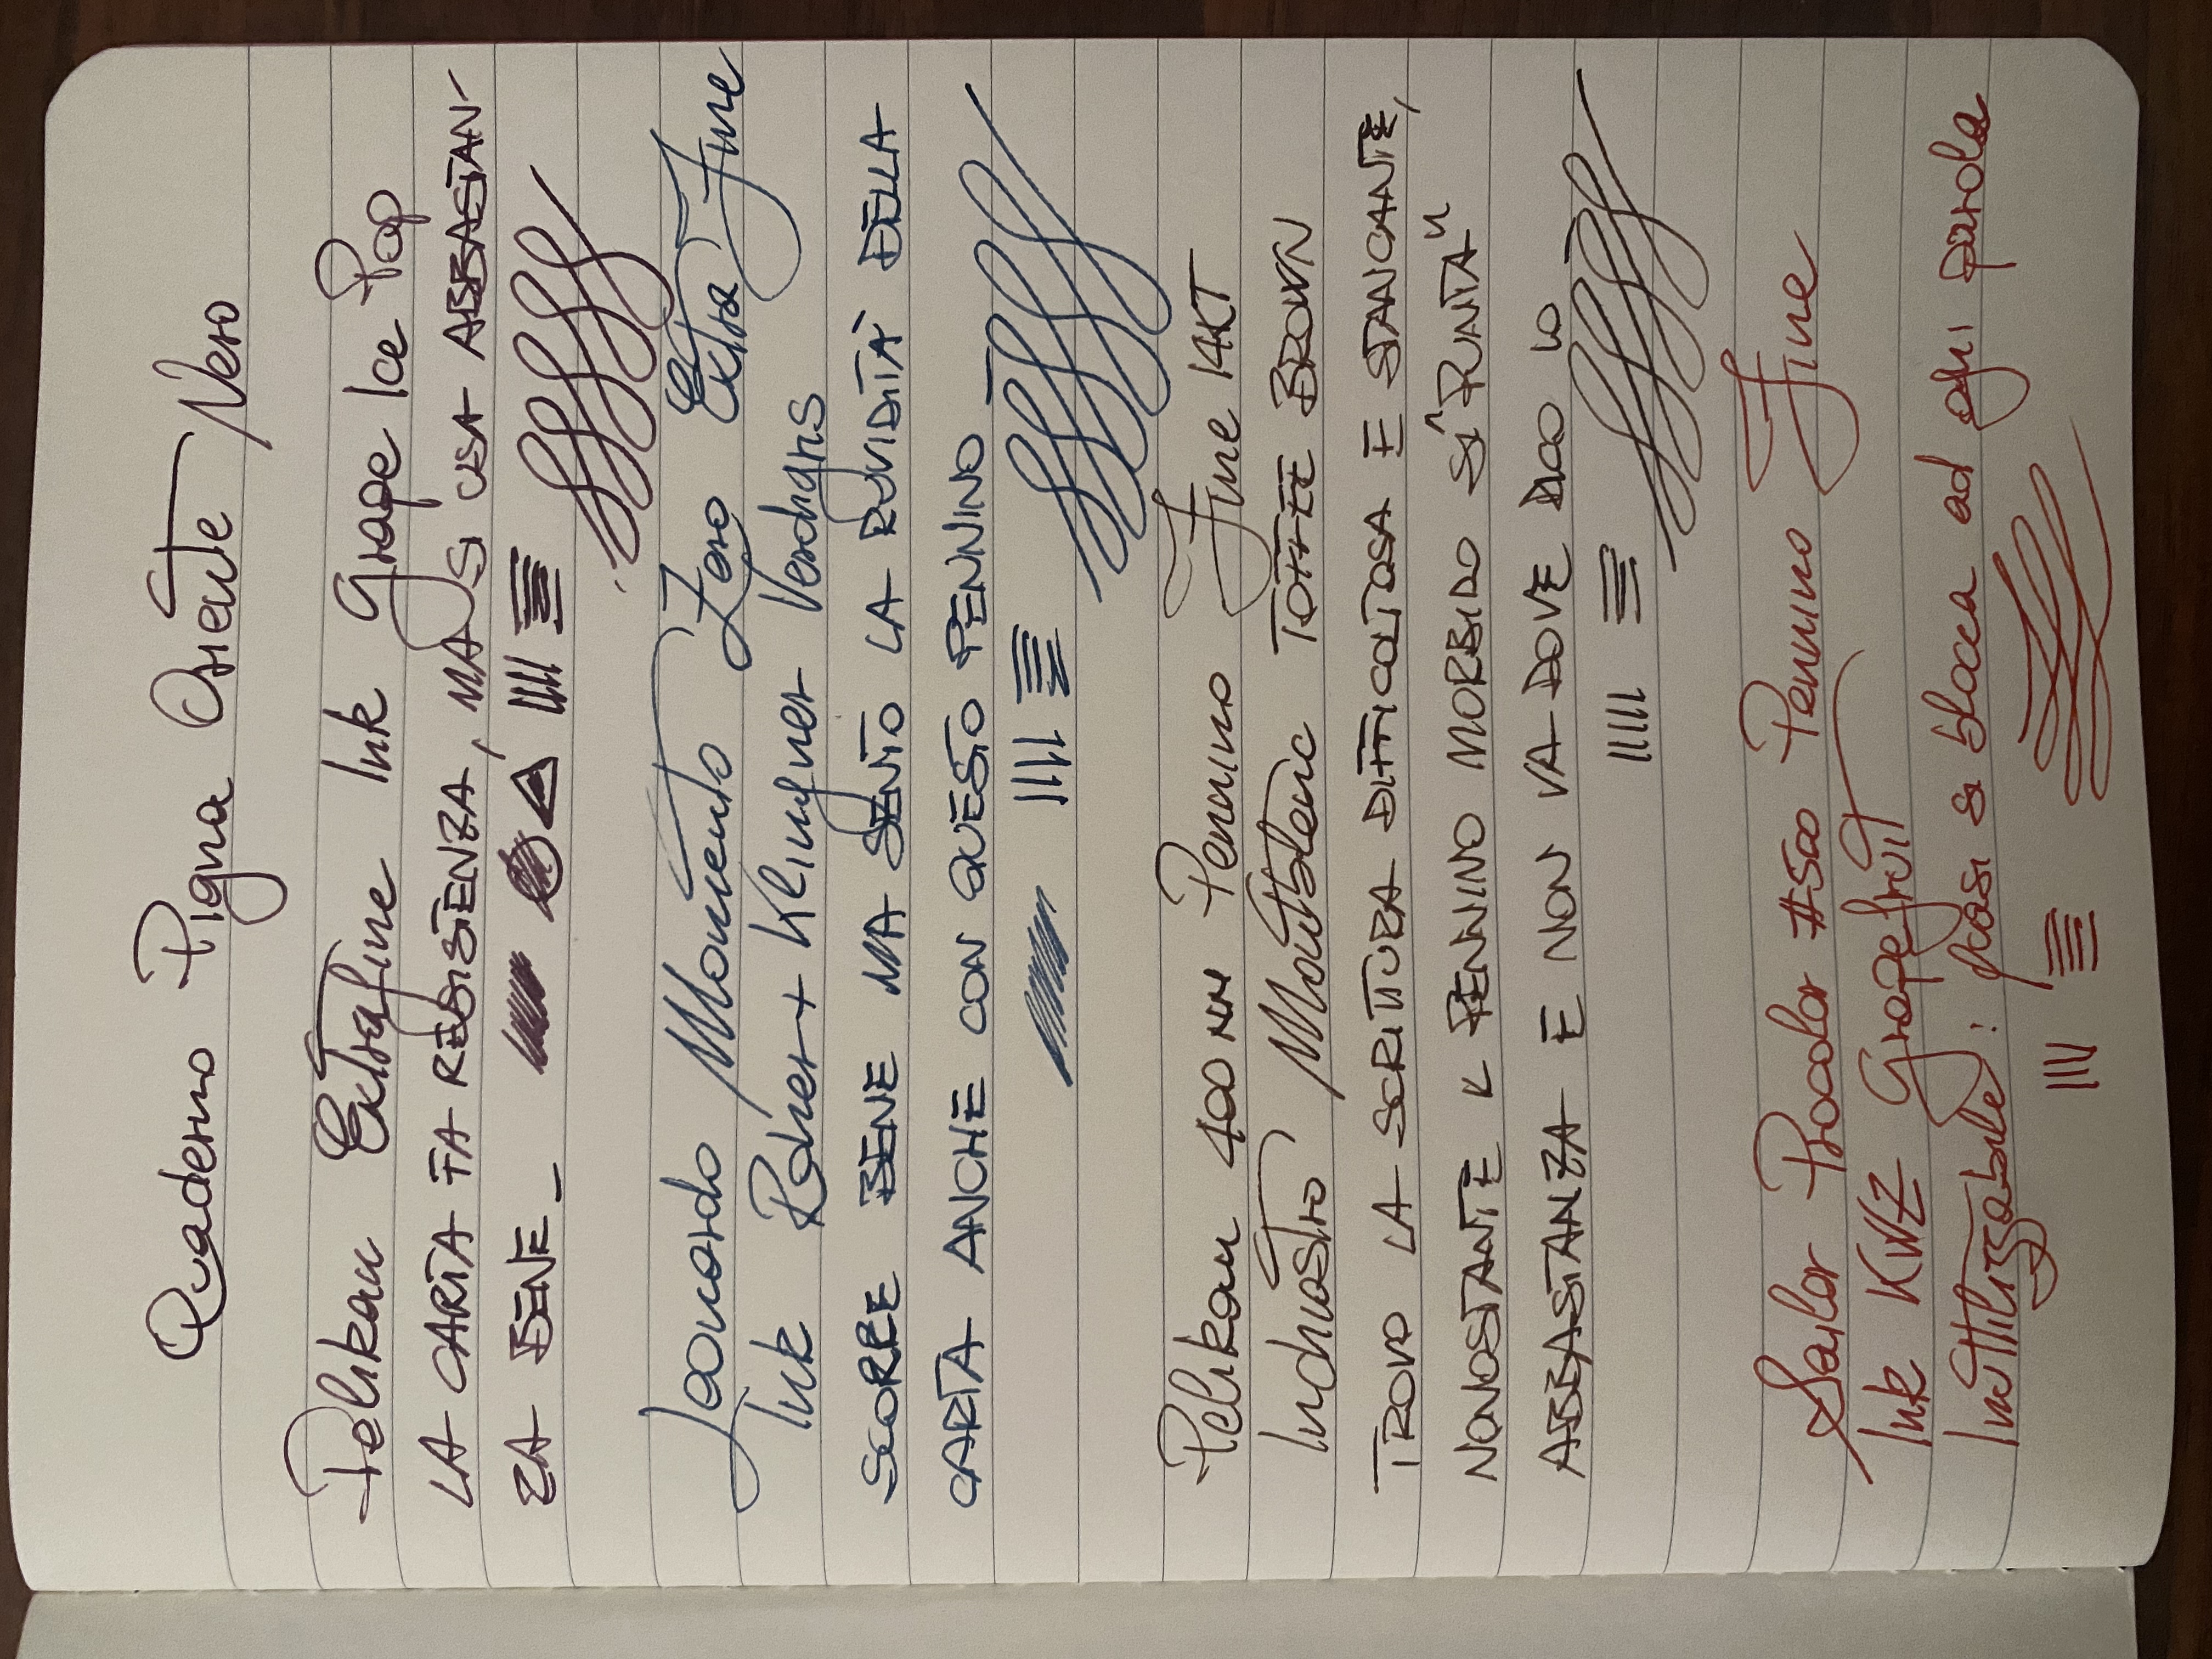 Quaderno Pigna Oriente Nero
Pelikan Extrafine Ink Grape Ice Pop
LA CARTA FA RESISTENZA, MA SI USA ABBASTAN-
ZA BENE_
Leonardo Momento Zero Extra Fine
Ink Roher + Klingner Verdigris
SCORRE BENE MA SENTO LA RUVIDITÀ DELLA
CARTA ANCHE CON QUESTO PENNINO
Pelikan 400NN Pennino Fine 14KT
Inchiostro Montblanc TOFFEE BROWN
TROVO LA SCRITTURA DIFFICOLTOSA E STANCANTE,
NONOSTANTE IL PENNINO MORBIDO SI "PUNTA"
ABBASTANZA E NON VA DOVE DICO IO
Sailor Procolor #500 Pennino Fine
Ink KWZ Grapefruit
Inutilizzabile: quasi si blocca ad ogni parola